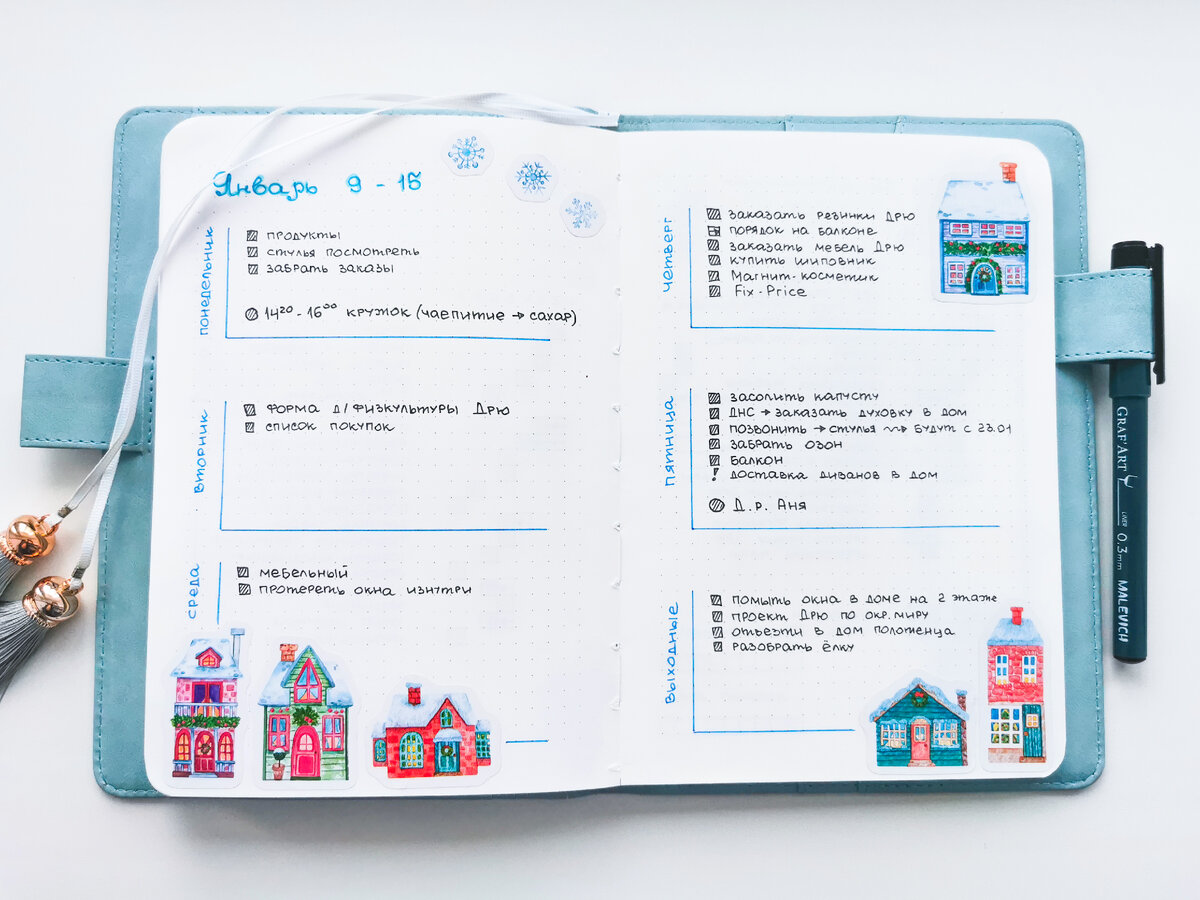 Январь 9 - 15
понедельник
продукты
стулья посмотреть
забрать заказы
14²⁰ - 16⁰⁰ кружок (чаепитие → сахар)
вторник
форма д/физкультуры Дрю
список покупок
среда
мебельный
протереть окна изнутри
четверг
заказать резинки Дрю
порядок на балконе
заказать мебель Дрю
купить шиповник
Магнит-косметик
Fix-Price
пятница
засолить капусту
ДНС → заказать духовку в дом
позвонить → стулья ⇝ будут с 23.01
забрать озон
балкон
! доставка диванов в дом
Д.р. Аня
выходные
помыть окна в доме на 2 этаже
проект Дрю по окр. миру
отвезти в дом полотенца
разобрать ёлку
GRAF'ART
LINER
0.3mm
MALEVICH